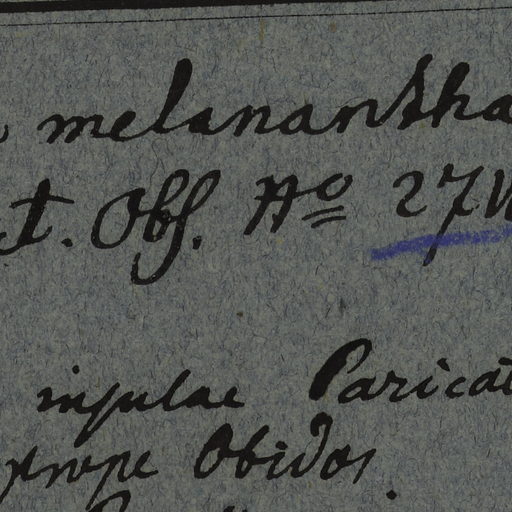 melanantha
t. Obs. Nº 27
insulae Paricat
prope Obidos.